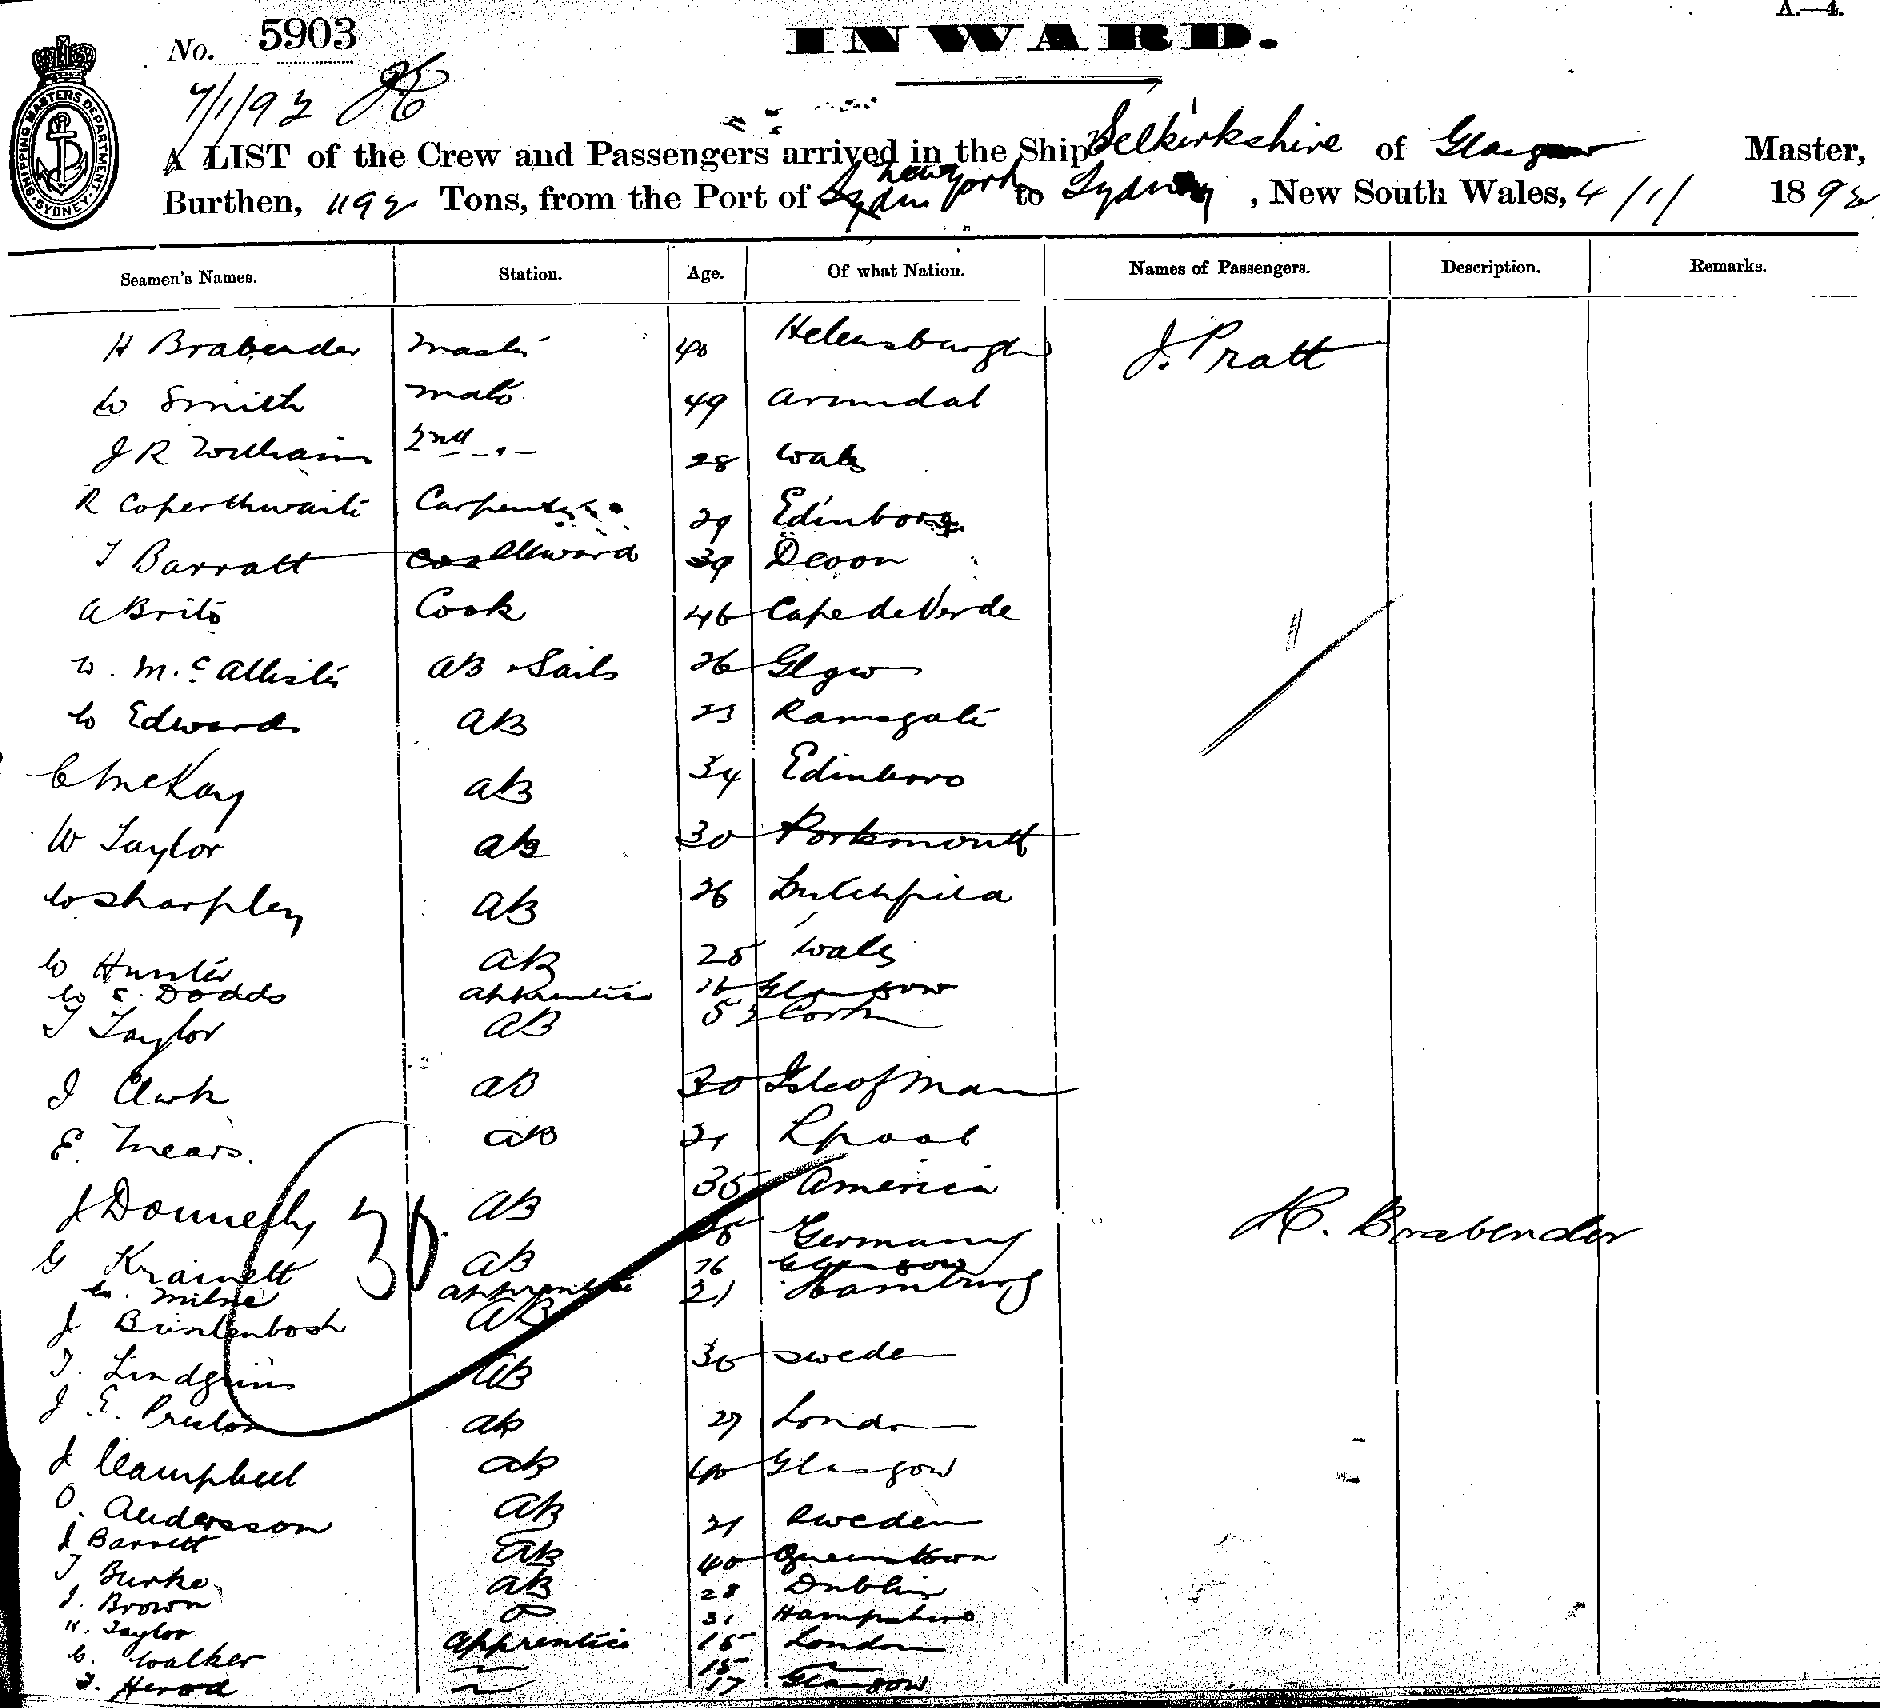 A.—4.
No. 5903
INWARD.
7/1/92
SHIPPING MASTERS DEPARTMENT SYDNEY
A LIST of the Crew and Passengers arrived in the Ship Selkirkshire of Glasgow Master,
Burthen, 1192 Tons, from the Port of New York to Sydney, New South Wales, 4/1/ 1892
Seamen's Names. Station. Age. Of what Nation. Names of Passengers. Description. Remarks.
H Brabender Master 40 Helensburgh J. Pratt
W Smith Mate 49 Arundal
J R William 2nd -"- 28 Wales
R Coperthwaite Carpenter 29 Edinboro
T Barratt Steward 39 Devon
A Brito Cook 46 Cape de Verde
W. McAllister AB & Sails 26 Glgw
W Edwards AB 23 Ramsgate
C McKay AB 34 Edinboro
W Taylor AB 30 Portsmouth
W Sharpley AB 26
W Hunter AB 25 Wales
W S. Dodds Apprentice 16 Glasgow
T Taylor AB 52 Cork
J Clark AB 30 Isle of Man
E. Mears. AB 21 Lpool
J Donnelly AB 35 America
30
G AB Germany H. Brabender
W. Milne Apprentice 16 Glasgow
J AB 21 Hamburg
T. Lindgrin AB 30 Sweden
J. E. Preston AB 27 London
J Campbell AB 40 Glasgow
O. Andersson AB 21 Sweden
J Barrett AB 40 Queenstown
T Burke AB 28 Dublin
J. Brown 31 Hampshire
H. Taylor Apprentice 15 London
C. Walker 15
J. Herod 17 Glasgow